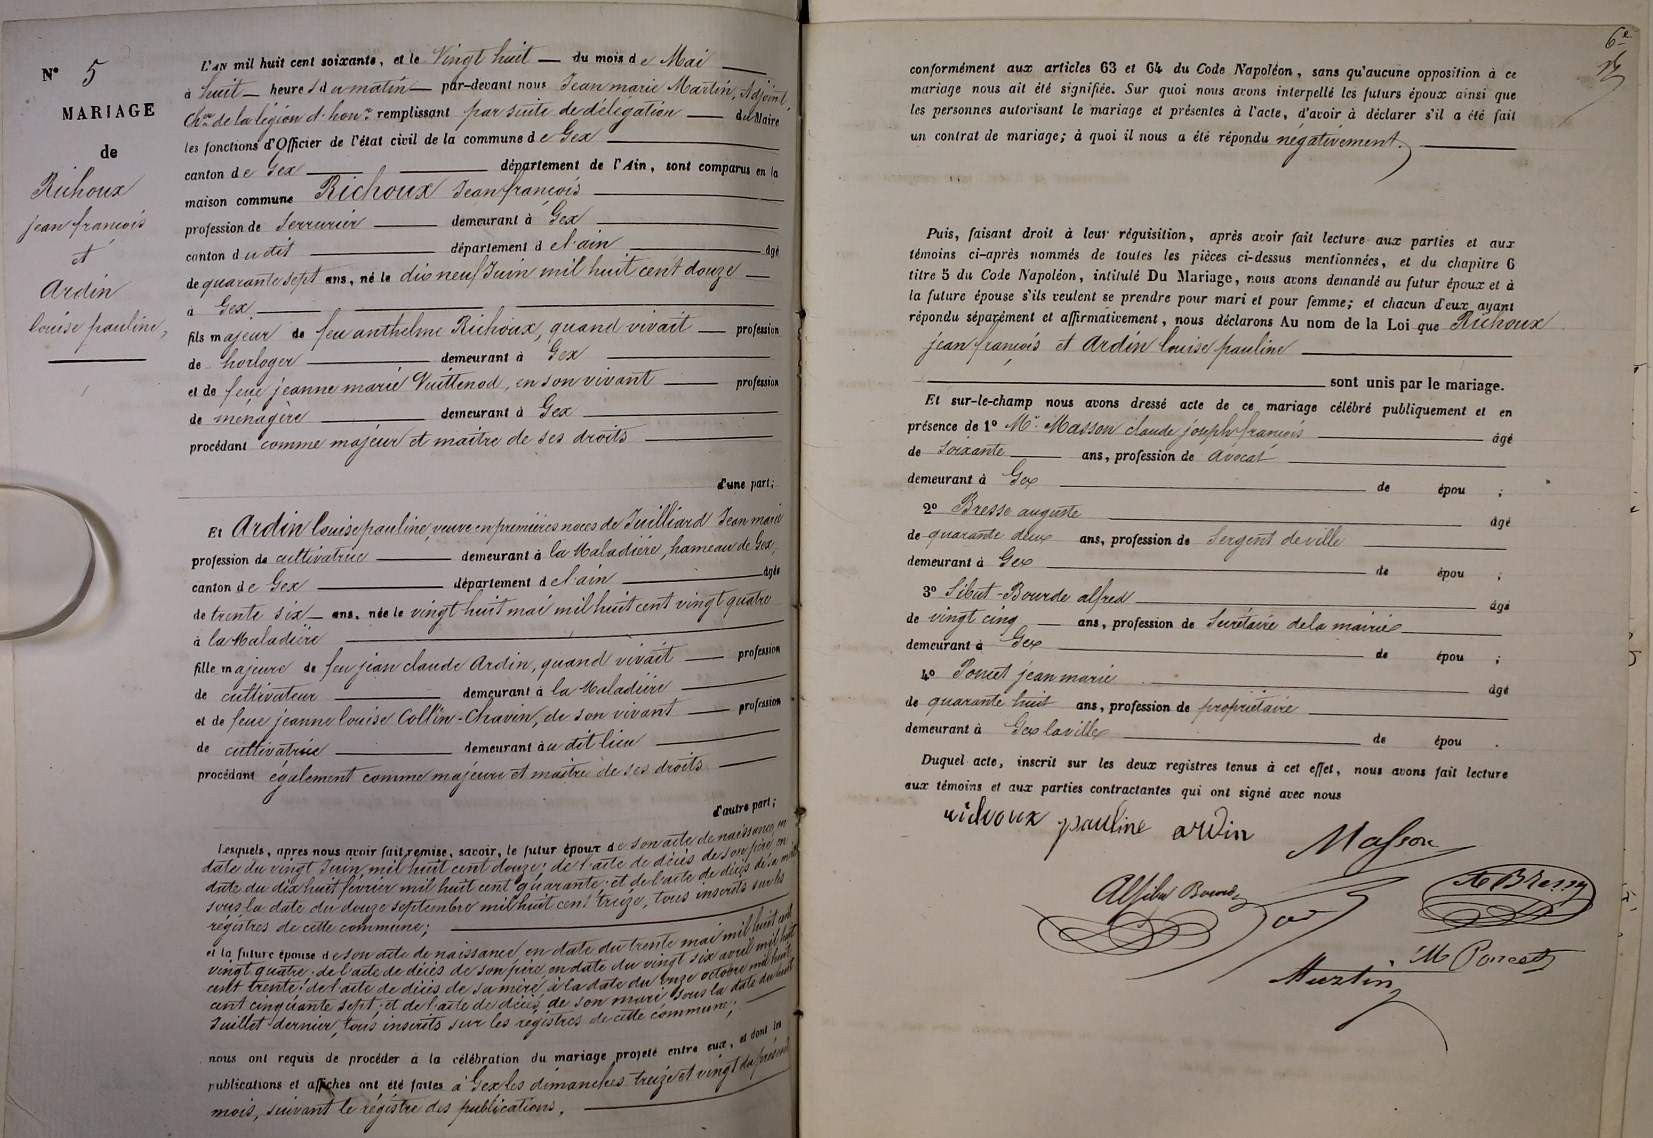 N° 5
MARIAGE
de
Richoux
jean françois
et
Ardin
louise pauline,
L'AN mil huit cent soixante, et le Vingt huit du mois de Mai
à huit heures du matin par-devant nous Jean marie Martin, Adjoint,
Cher de la légion d'honr remplissant par suite de délégation du Maire
les fonctions d'Officier de l'état civil de la commune de Gex
canton de Gex département de l'Ain, sont comparus en la
maison commune Richoux Jean françois
profession de Serrurier demeurant à Gex
canton du dit département de l'ain âgé
de quarante sept ans, né le dix neuf Juin mil huit cent douze
à Gex.
fils majeur de feu anthelme Richoux, quand vivait profession
de horloger demeurant à Gex
et de feue jeanne marie Vuittenod, en son vivant profession
de ménagère demeurant à Gex
procédant comme majeur et maître de ses droits
d'une part;
Et Ardin louise pauline, veuve en premières noces de Juilliard Jean marie
profession de cultivatrice demeurant à la Maladière, hameau de Gex,
canton de Gex département de l'ain âgée
de trente six ans, née le vingt huit mai mil huit cent vingt quatre
à la Maladière
fille majeure de feu jean claude Ardin, quand vivait profession
de cultivateur demeurant à la Maladière
et de feue jeanne louise Collin-Chavin, de son vivant profession
de cultivatrice demeurant au dit lieu
procédant également comme majeure et maître de ses droits
d'autre part;
Lesquels, après nous avoir fait remise, savoir, le futur époux de son acte de naissance, en
date du vingt Juin mil huit cent douze; de l'acte de décès de son père en
date du dix huit février mil huit cent quarante; et de l'acte de décès de sa mère
sous la date du douze septembre mil huit cent treize, tous inscrits sur les
régistres de cette commune;
et la future épouse de son acte de naissance, en date du trente mai mil huit cent
vingt quatre; de l'acte de décès de son père, en date du vingt six avril mil huit
cent trente; de l'acte de décès de sa mère, à la date du onze octobre mil huit
cent cinquante sept; et de l'acte de décès de son mari sous la date du huit
Juillet dernier, tous inscrits sur les régistres de cette commune;
nous ont requis de procéder à la célébration du mariage projeté entre eux, et dont les
publications et affiches ont été faites à Gex les dimanches treize et vingt du présent
mois, suivant le régistre des publications.
6e
conformément aux articles 63 et 64 du Code Napoléon, sans qu'aucune opposition à ce
mariage nous ait été signifiée. Sur quoi nous avons interpellé les futurs époux ainsi que
les personnes autorisant le mariage et présentes à l'acte, d'avoir à déclarer s'il a été fait
un contrat de mariage; à quoi il nous a été répondu négativement.
Puis, faisant droit à leur réquisition, après avoir fait lecture aux parties et aux
témoins ci-après nommés de toutes les pièces ci-dessus mentionnées, et du chapitre 6
titre 5 du Code Napoléon, intitulé Du Mariage, nous avons demandé au futur époux et à
la future épouse s'ils veulent se prendre pour mari et pour femme; et chacun d'eux ayant
répondu séparément et affirmativement, nous déclarons Au nom de la Loi que Richoux
jean françois et Ardin louise pauline
sont unis par le mariage.
Et sur-le-champ nous avons dressé acte de ce mariage célébré publiquement et en
présence de 1° Mr Masson claude joseph françois âgé
de soixante ans, profession de Avocat
demeurant à Gex de épou ;
2° Bresse auguste âgé
de quarante deux ans, profession de Sergent de ville
demeurant à Gex de épou ;
3° Sibut-Bourde alfred âgé
de vingt cinq ans, profession de Secrétaire de la mairie
demeurant à Gex de épou ;
4° Poncet jean marie âgé
de quarante huit ans, profession de propriétaire
demeurant à Gex la ville de épou .
Duquel acte, inscrit sur les deux registres tenus à cet effet, nous avons fait lecture
aux témoins et aux parties contractantes qui ont signé avec nous
richoux pauline ardin Masson
M Poncet
Martin